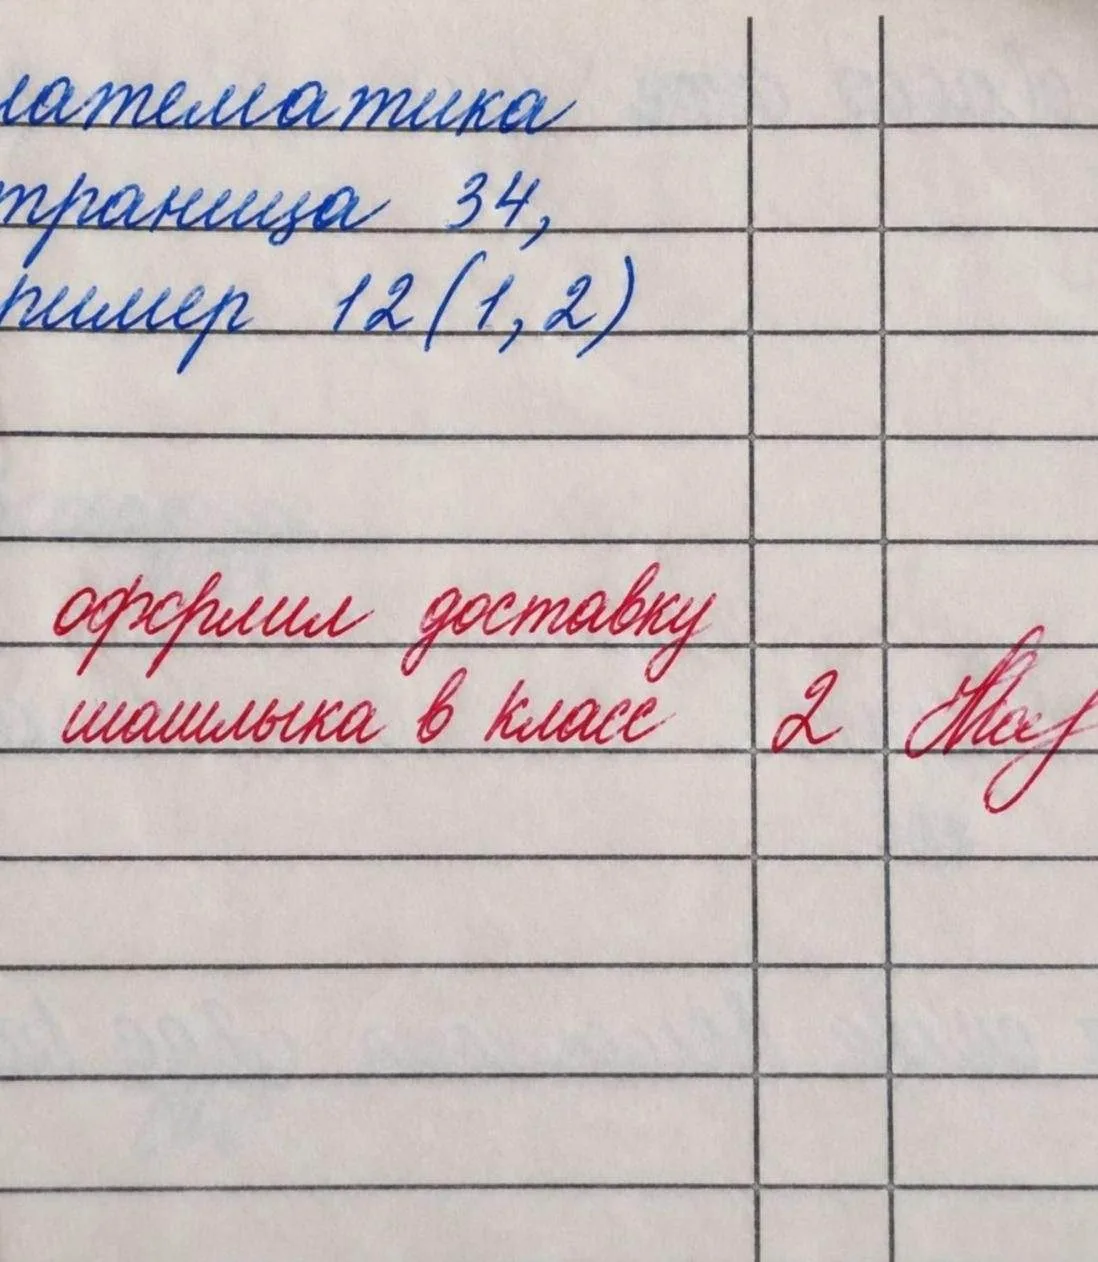 латематика
траница 34,
ример 12 (1, 2)
оформил доставку
шашлыка в класс 2